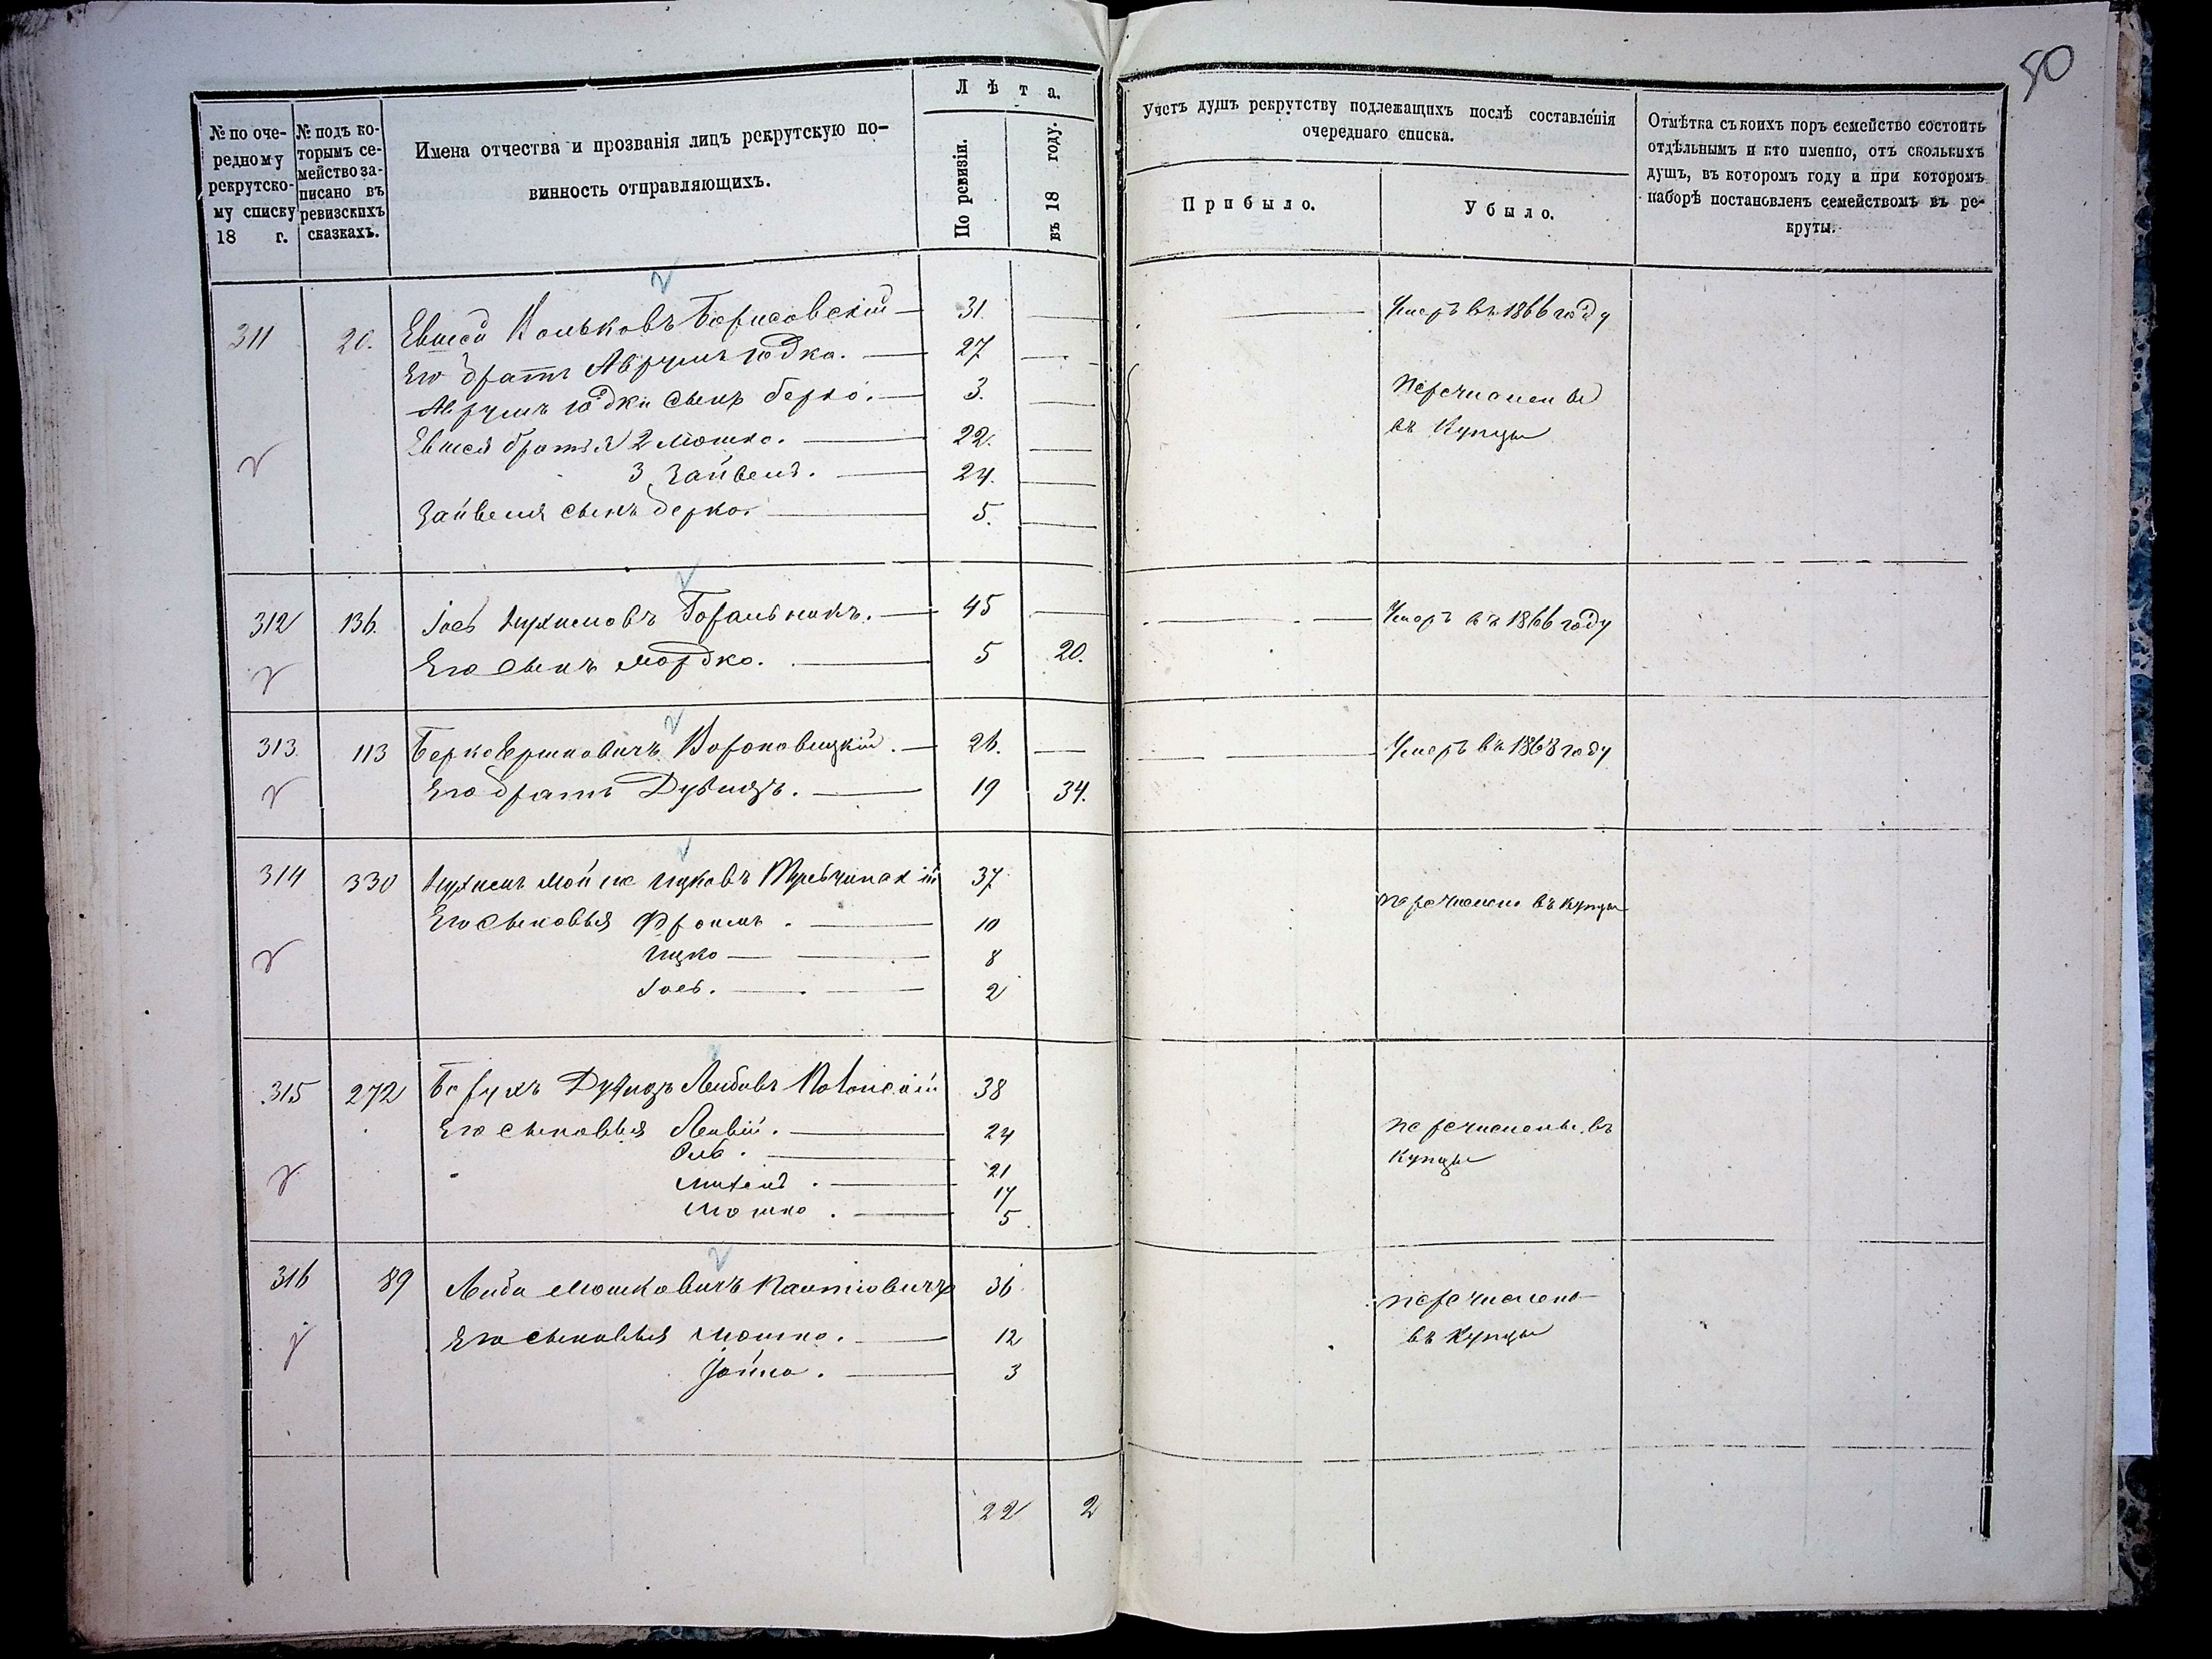 50
№ по оче-
редному
рекрутско-
му списку
18 г.
№ подъ ко-
торымъ се-
мейство за-
писано въ
ревизскихъ
сказкахъ.
Имена отчества и прозванія лицъ рекрутскую по-
винность отправляющихъ.
Лѣта.
По ревизіи.
въ 18 году.
Учетъ душъ рекрутству подлежащихъ послѣ составленія
очереднаго списка.
Прибыло.
Убыло.
Отмѣтка съ коихъ поръ семейство состоитъ
отдѣльнымъ и кто именно, отъ сколькихъ
душъ, въ которомъ году и при которомъ
наборѣ поставленъ семействомъ въ ре-
круты.
311 20. Борисовскій 31. Умеръ въ 1866 году
Его братъ Аврумъ Юдка. 27
Аврумъ Юдки сынъ Берко. 3. Перечислены
Евшея братья 2 Мошко. 22. въ Купцы
3 Зайвель. 24.
Зайвеля сынъ Берко. 5.
312 136. Іось Нухимовъ 45 Умеръ въ 1866 году
Его сынъ Мордко. 5 20.
313. 113 Берко Вороновицкій. 26. Умеръ въ 1868 году
Его братъ Дувидъ. 19 34.
314 330 Нухимъ Мойше Ицковъ 37 перечислены въ купцы
Его сыновья Фроимъ. 10
Ицко 8
Іось. 2
315 272 Борухъ Дувидъ Лейбовъ 38
Его сыновья 24 перечислены въ
21 купцы
17
Мошко. 5
316 89 Лейба Мошковичъ 36 перечислены
Его сыновья Мошко. 12 въ Купцы
3
22 2